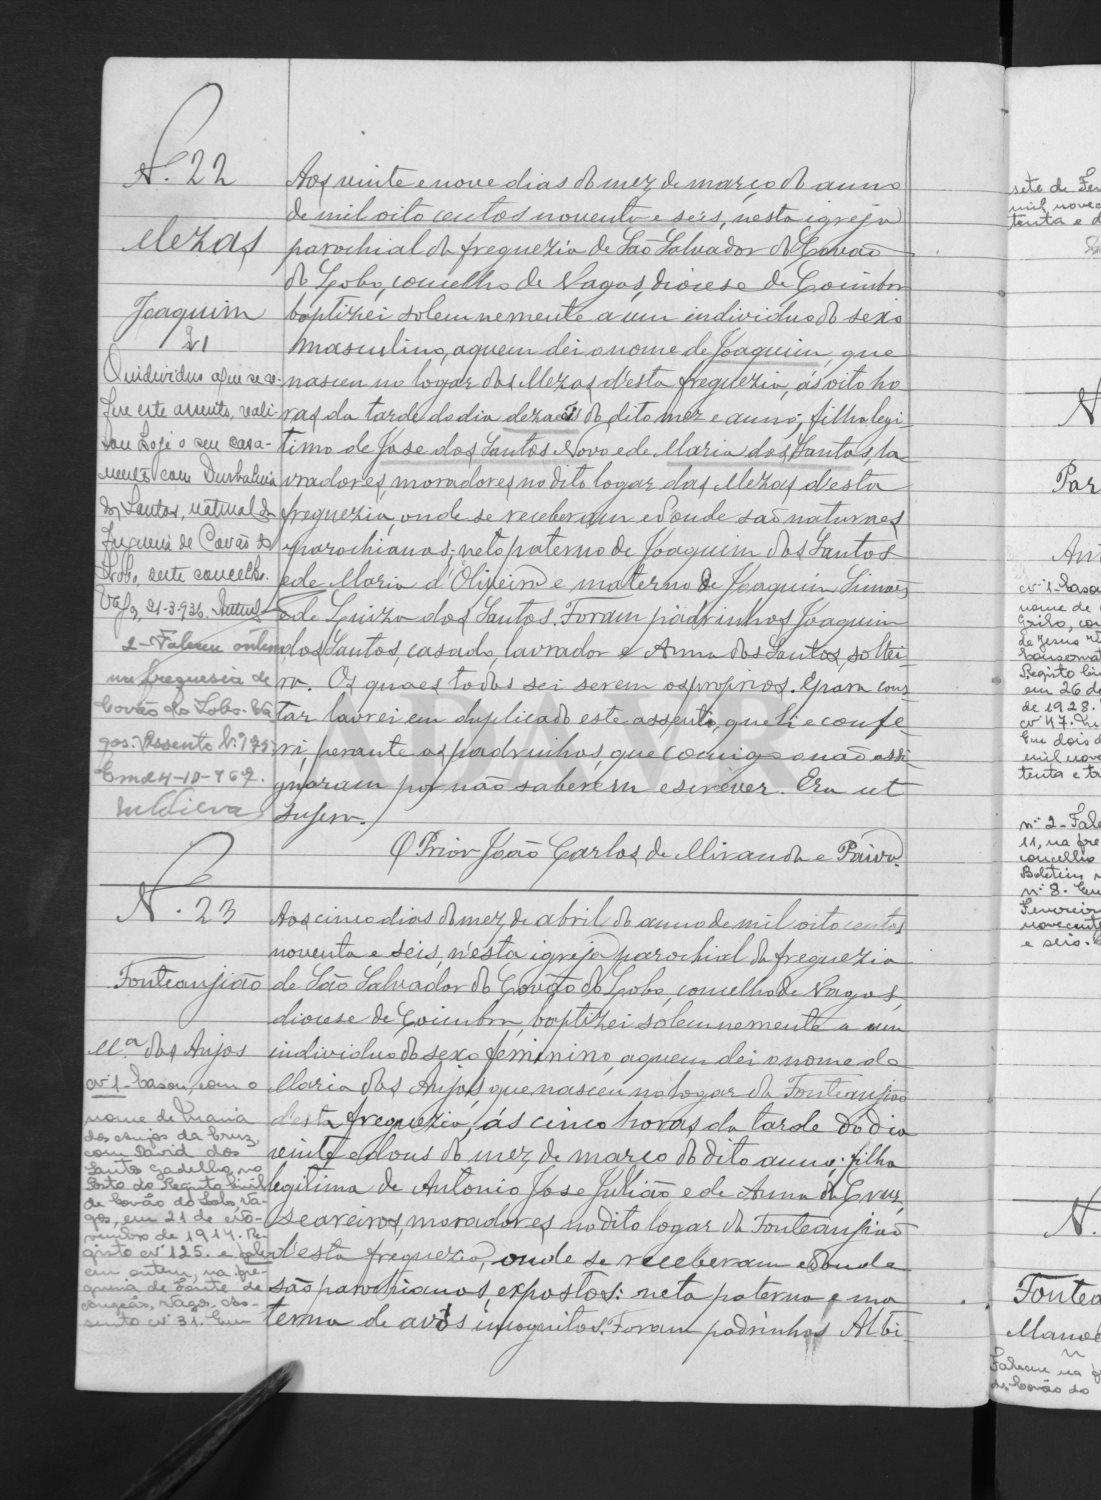 N. 22
Mezas
Joaquim
N 1
O individuo a que se re-
fere este assento, reali-
sou hoje o seu casa-
mento com Durbalina
dos Santos, natural da
freguesia de Covão do
Lobo, deste concelho.
Vagos, 21-3-936.
2-Faleceu ontem
na freguesia de
Covão do Lobo-Va-
gos. Assento N.
Em 24-10-962.
Aos vinte e nove dias do mez de março do anno
de mil oito centos noventa e seis, nesta igreja
parochial da freguezia de São Salvador do Covão
do Lobo, concelho de Vagos, diocese de Coimbra
baptizei solemnemente a um individuo do sexo
masculino, a quem dei o nome de Joaquim, que
nasceu no logar das Mezas d'esta freguezia, ás oito ho-
ras da tarde do dia do dito mez e anno; filho legi-
timo de Jose dos Santos Novo e de Maria dos Santos, la-
vradores, moradores no dito logar das Mezas d'esta
freguezia onde se receberam e d'onde são naturaes
e parochianos; neto paterno de Joaquim dos Santos
e de Maria d'Oliveira e materno de Joaquim Simões
e de Luiza dos Santos. Foram padrinhos Joaquim
dos Santos, casado, lavrador e Anna dos Santos, soltei-
ra. Os quaes todos sei serem os proprios. E para cons-
tar lavrei em duplicado este assento, que li e confe-
ri, perante os padrinhos, que comigo o não assi-
gnaram por não saberem escrever. Era ut
supra.
O Prior João Carlos de Miranda e Paiva.
N. 23
Fonteanjião
M.a dos Anjos
Nº 1-Casou, com o
nome de Maria
dos Anjos da Cruz,
com David dos
Santos Gadelho, no
Posto do Registo Civil
de Covão do Lobo, Va-
gos, em 21 de No-
vembro de 1917. Re-
gisto Nº 125. e faleceu
em ontem, na fre-
guesia de Fonte de
Angeão, Vagos, As-
sento Nº 31. Em
Aos cinco dias do mez de abril do anno de mil oito centos
noventa e seis, n'esta igreja parochial da freguezia
de São Salvador do Covão do Lobo, concelho de Vagos,
diocese de Coimbra, baptizei solemnemente a um
individuo do sexo feminino, a quem dei o nome de
Maria dos Anjos que nasceu no logar da Fonteanjião
d'esta freguezia, ás cinco horas da tarde do dia
vinte e dous do mez de março do dito anno; filha
legitima de Antonio Jose Julião e de Anna da Cruz,
seareiros, moradores no dito logar da Fonteanjião
d'esta freguezia, onde se receberam e d'onde
são parochianos, expostos: neta paterna e ma-
terna de avós incognitos. Foram padrinhos Albi-
ADAVR
sete de Fev
mil novec
tenta e d
N
Par
Ant
Nº 1-Casou
nome de
Grilo, con
de Jesus
Consomat
Registo Civ
em 26 de
de 1928.
Nº 47.
Em dois d
mil nove
tenta e tr
nº 2-Fale
11, na fre
concelho
Boletim
nº 8. Em
Fevereiro
novecent
e seis.
N.
Fontea
Manoe
Faleceu na f
de Covão do